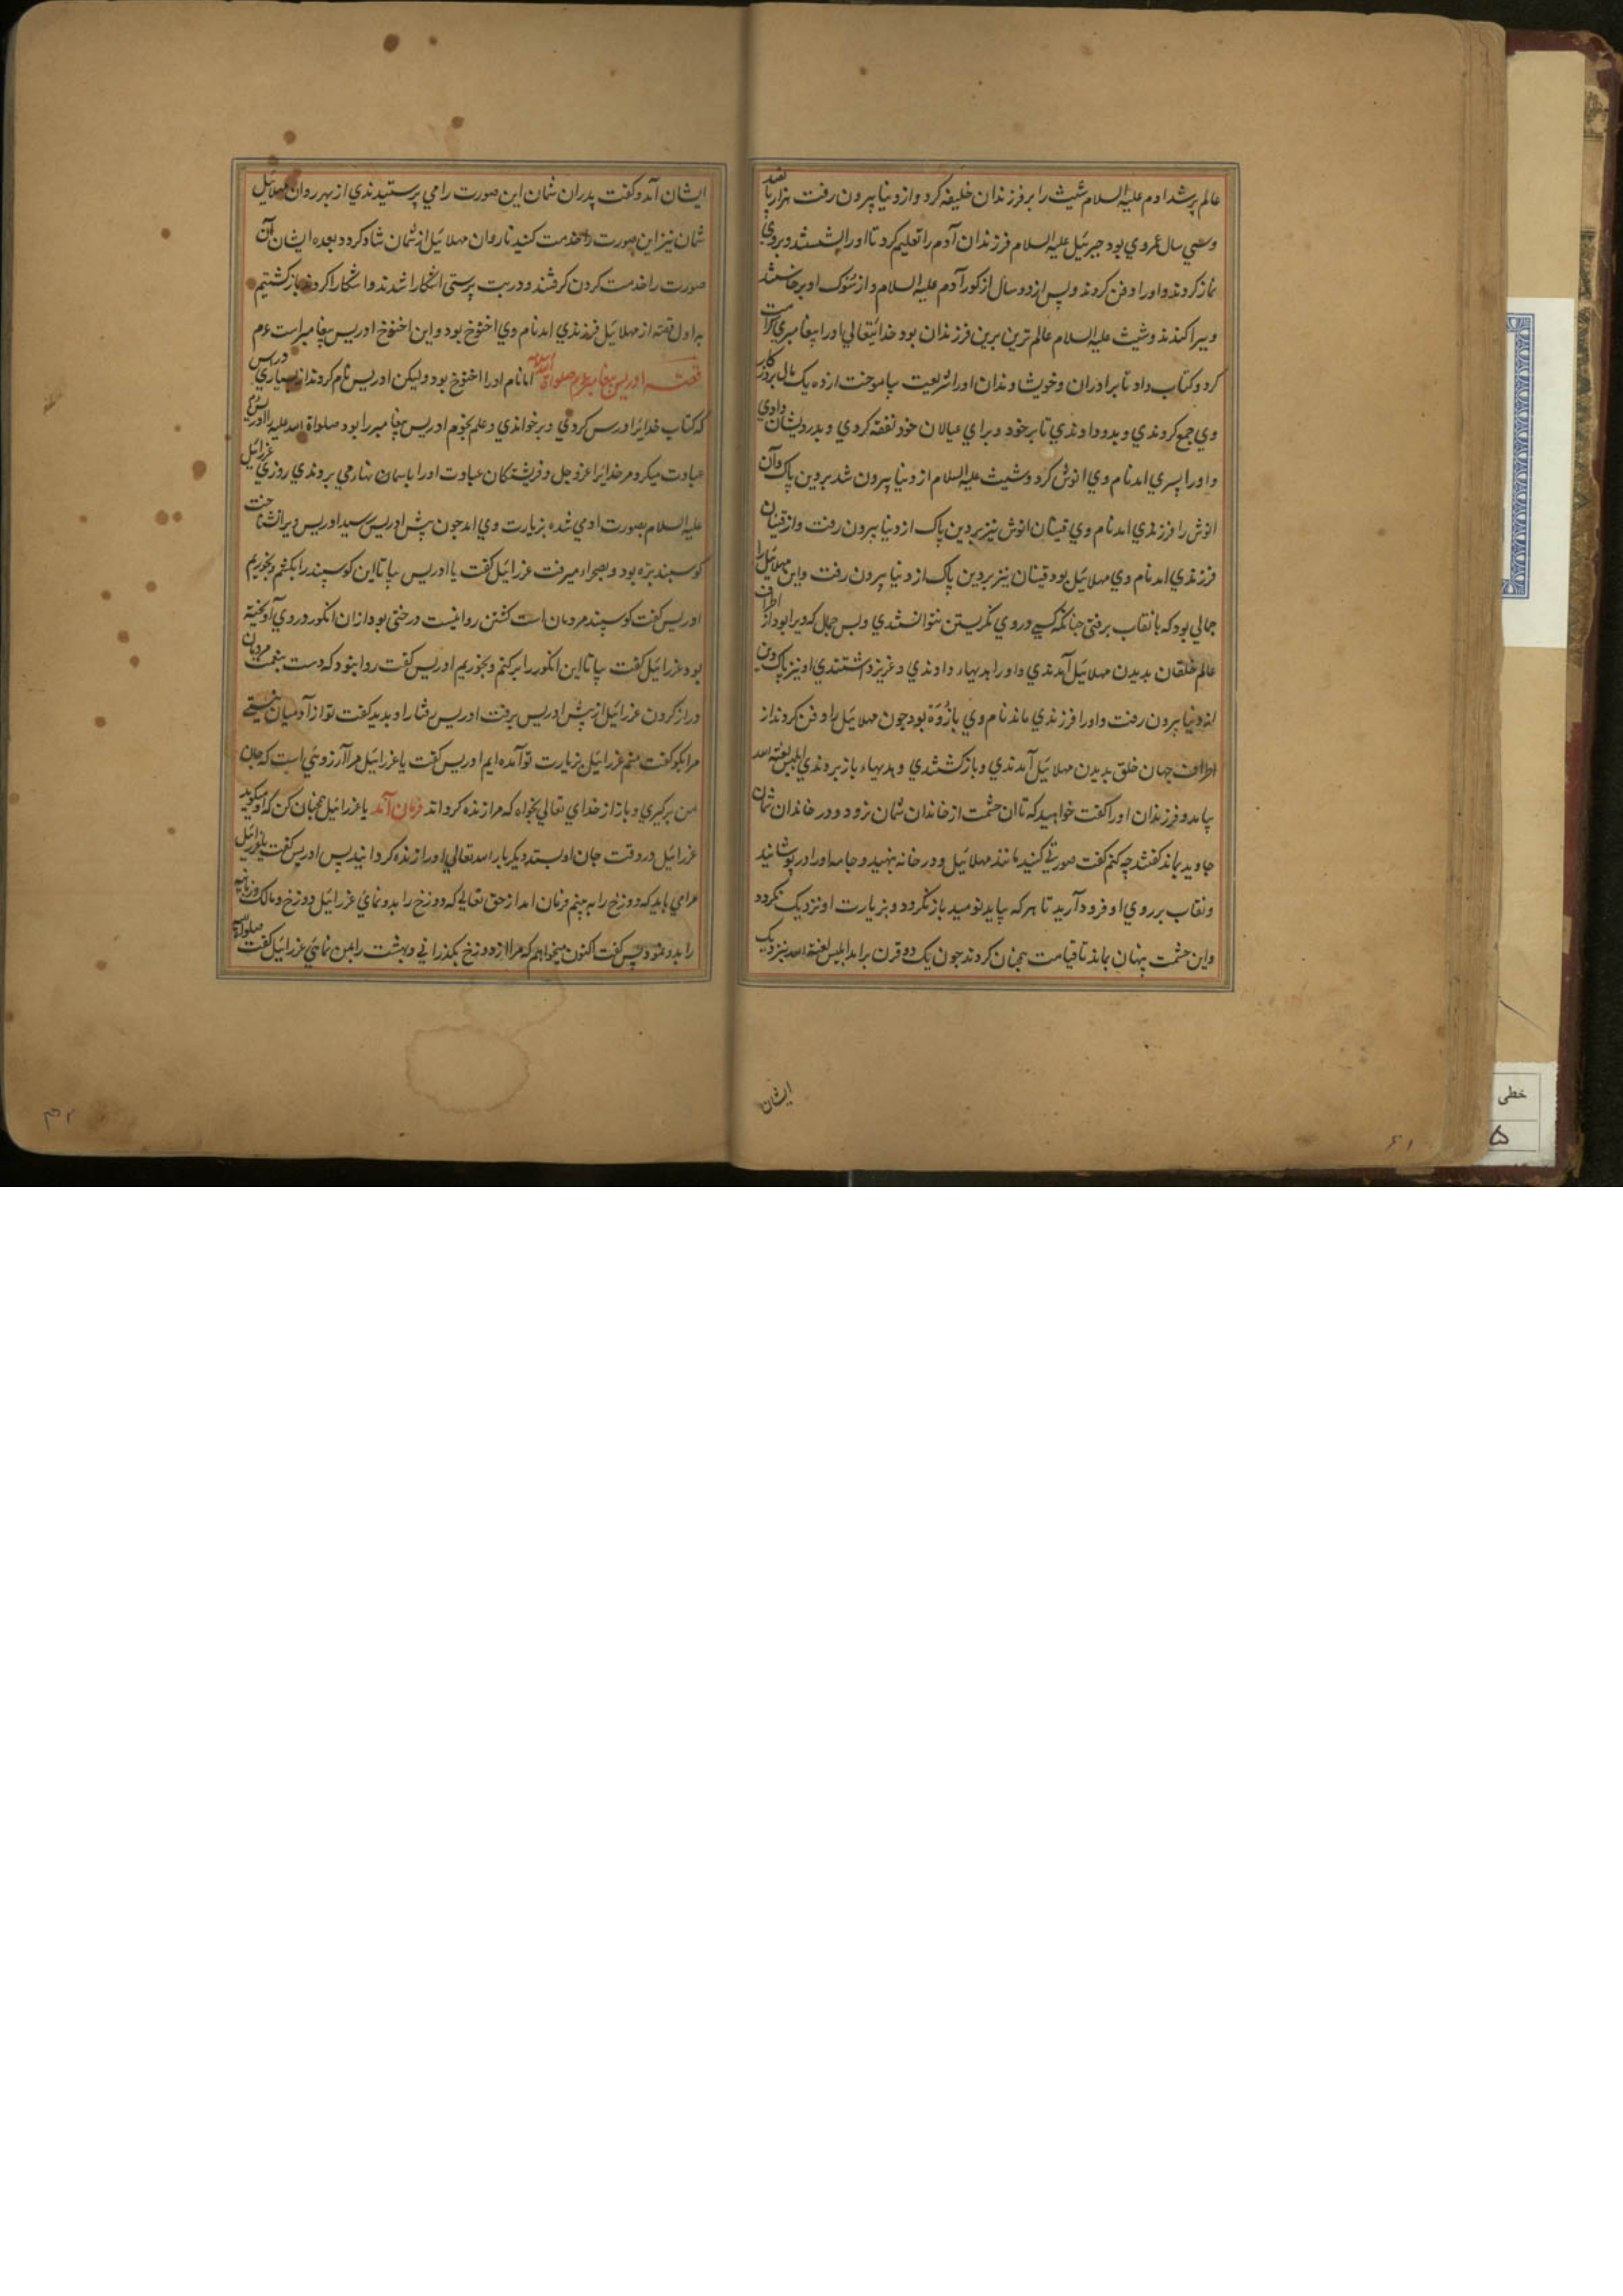 عالم پر شد ادم علیه السلام شیث را بر فرزندان خلیفه کرد و از دنیا بیرون رفت هزار
و سی سال عمر وی بود جبرئیل علیه السلام فرزندان آدم را تعلیم کرد تا او را بشستند و بروی
نماز کردند و او را دفن کردند و پس از دو سال از کور آدم علیه السلام و از سوک او برخاستند
و شیث علیه السلام عالم ترین برین فرزندان بود خدایتعالی او را پیغامبری کرامت
کرد و کتاب داد تا برادران و خویشاوندان او را شریعت بیاموخت از ده یک مال
وی جمع کردندی و بدو داوندی تا بر خود و برای عیالان خود نفقه کردی و بدرویشان دادی
و او را پسری امد نام وی انوش کرد و شیث علیه السلام از دنیا بیرون شد بر دین پاک و آن
انوش را فرزندی امد نام وی قینان انوش نیز بر دین پاک از دنیا بیرون رفت و از قینان
فرزندی امد نام وی مهلائیل بود قینان نیز بر دین پاک از دنیا بیرون رفت و این مهلائیل را
جمالی بود که با نقاب برفتی چنانکه کسی در وی نکریستن نتوانستدی و بس جمال که ویرا بود از اطراف
عالم خلقان بدیدن مهلائیل آمدندی و او را هدیهاء داوندی و عزیز داشتندی او نیز پاک دین
از دنیا بیرون رفت و او را فرزندی ماند نام وی یازوه بود چون مهلائیل را دفن کردند از
اطراف جهان خلق بدیدن مهلائیل آمدندی و باز کشتندی و هدیهاء باز بروندی ابلیس لعنه الله
بیامد و فرزندان او را کفت خواهید که تا ان حشمت از خاندان شمان نرود و در خاندان شمان
جاوید بماند کفتند چه کنم کفت صورتی کنید مانند مهلائیل و در خانه بنهید و جامه او را در پوشانید
و نقاب بر روی او فرود آرید تا هر که بیاید نومید باز نکردد و بزیارت او نزدیک نکردد
و این حشمت پنهان بماند تا قیامت همچنان کردند چون یک دو قرن برامد ابلیس لعنة الله بنزدیک
ایشان
ایشان آمد و کفت پدران شمان این صورت را می پرستیدندی از بهر روان مهلائیل
شمان نیز این صورت را خدمت کنید تا روان مهلائیل از شمان شاد کردد بعده ایشان آن
صورت را خدمت کردن کرفتند و در بت پرستی اشکارا شدند و اشکارا کردند باز کشتیم
به اول قصه از مهلائیل فرزندی امد نام وی اخنوخ بود و این اخنوخ ادریس پیغامبر است عم
قصه ادریس پیغامبر عم صلواة الله علیه اما نام او را اخنوخ بود ولیکن ادریس نام کردند از بسیاری درس
که کتاب خدایرا درس کردی و بر خواندی و علم نجوم ادریس پیغامبر را بود صلواة الله علیه
عبادت میکرد مر خدایرا عز و جل و فریشتکان عبادت او را باسمان می بروندی روزی عزرائیل
علیه السلام بصورت ادمی شده بزیارت وی امد چون پیش ادریس رسید ادریس ویرا نشناخت
کوسپند بزه بود و بصحراء میرفت عزرائیل کفت یا ادریس بیا تا این کوسپند را بکشم و بخوریم
ادریس کفت کوسپند مردمان است کشتن روا نیست درختی بود از ان انکور در وی آویخته
بود عزرائیل کفت بیا تا این انکور را بر کنم و بخوریم ادریس کفت روا نبود که دست بنعمت مردمان
دراز کردن عزرائیل از پیش ادریس برفت ادریس رفتار او بدید کفت تو از آدمیان نیستی
مرا بکو کفت منم عزرائیل بزیارت تو آمده ایم ادریس کفت یا عزرائیل مرا آرزوئی است که جان
من برکیری و باز از خدای تعالی بخواه که مرا زنده کرداند فرمان آمد یا عزرائیل همچنان کن که او میکوید
عزرائیل در وقت جان او بستد دیکر بار الله تعالی او را زنده کردانید پس ادریس کفت یا عزرائیل
مرا می باید که دوزخ را به بینم فرمان امد از حق تعالی که دوزخ را بدو نمای عزرائیل دوزخ و مالک و زبانیه
را بدو نمود پس کفت اکنون میخواهم که مرا از دوزخ بکذرانی و بهشت را بمن نمائی عزرائیل کفت
خطی
۵